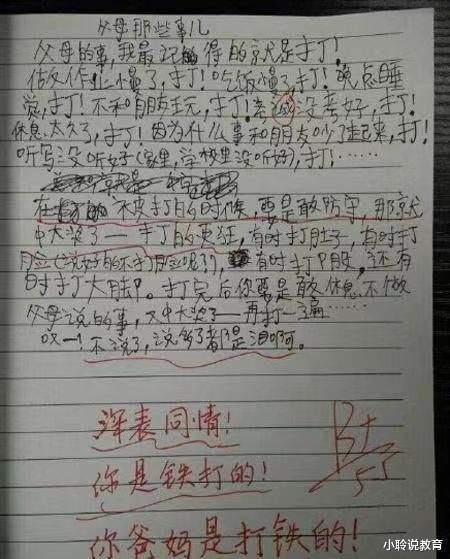 父母那些事儿
父母的事,我最记的得的就是打!
做作业慢了,打!吃饭慢了,打!晚点睡
觉,打!不和朋友玩,打!考试没考好,打!
休息太久了,打!因为什么事和朋友吵了起来,打!
听写没听好(家里,学校里没听好),打!……
在 不被打的时候,要是敢防守,那就
中大奖了——打的更狂,有时打肚子,有时打
脸(说好的不打脸呢?),有时打P股,还有
时打大腿。打完后你要是敢休息不做
父母说的事,又中大奖了——再打一遍……
哎!不说了,说多了都是泪啊。
深表同情!
你是铁打的!
B+
53
你爸妈是打铁的!
小聆说教育